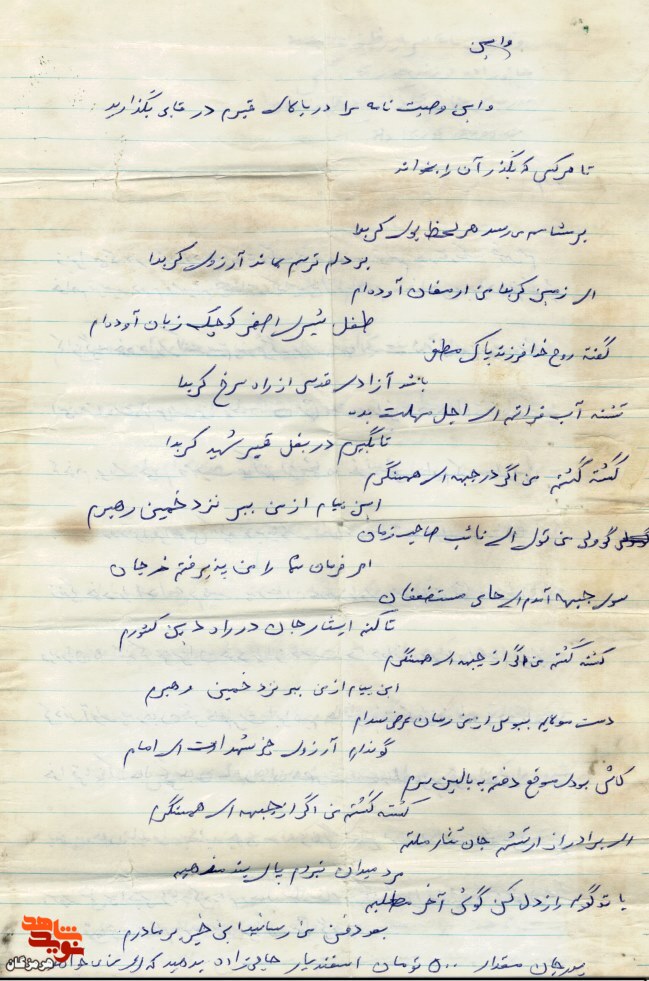 وایس
و این وصیت نامه را در بالای قبرم در قابی بگذارید
تا هرکس که بگذر آن را بخواند
بر مشامم می رسد هر لحظه بوی کربلا
بر دلم ترسم بماند آرزوی کربلا
ای زمین کربلا من ارمغان آورده‌ام
طفل شیری اصغر کوچک زبان آورده‌ام
گفته روح خدا فرزند پاک مصطفی
باشد آزادی قدس از راه سرخ کربلا
تشنه آب فراتم ای اجل مهلت بده
تا بگیرم در بغل قبر شهید کربلا
کشته گشتم من اگر در جبهه ای همسنگرم
این پیام از من ببر نزد خمینی رهبرم
گو ولی من قول ای نائب صاحب زمان
امر فرمان شما را من پذیرفتم ز جان
سوی جبهه آمدم ای حامی مستضعفان
تا کنم ایثار جان در راه دین کشورم
کشته گشتم من اگر از جبهه ای همسنگرم
این پیام از من ببر نزد خمینی رهبرم
دست ببوس از من رسان عرض سلام
گو ندارم آرزوی جز شهادت ای امام
کاش بودی موقع دفنم به بالین سرم
کشته گشتم من اگر از جبهه ای همسنگرم
ای برادر از ارتشم جان نثار ملتم
مرد میدان نبردم پای بند مذهبم
با تو گویم راز دل کن گوش آخر مطلبم
بعد دفن من رسانید این خبر بر مادرم
پدر جان مقدار ۵۰۰ تومان اسفندیار زاده بدهید که
شاهد
نوید
هرمزگان